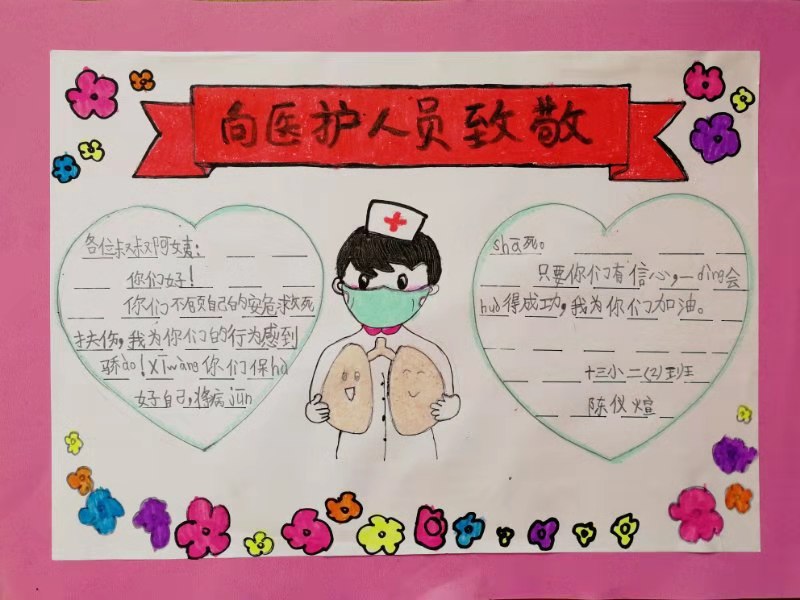 向医护人员致敬
各位叔叔阿姨:
你们好!
你们不顾自己的安危救死
扶伤,我为你们的行为感到
骄ào!Xīwàng你们保hù
好自己,将病jūn
shā死。
只要你们有信心,一dìng会
huò得成功,我为你们加油。
十三小二(2)班
陈仪煊